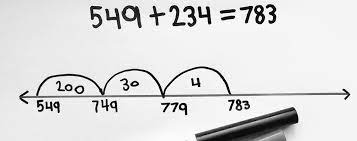 549 + 234 = 783
200 30 4
549 749 779 783